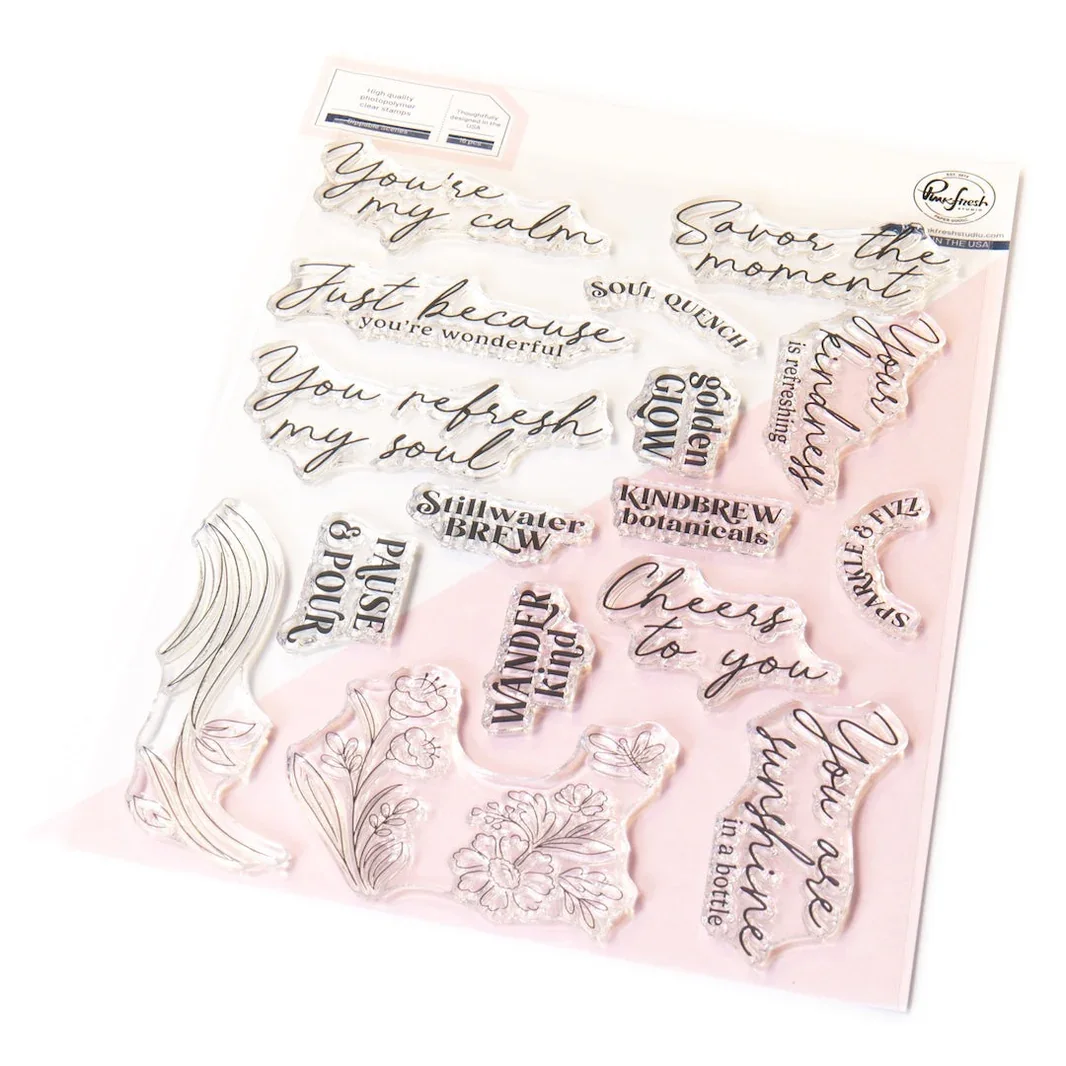 High quality
photopolymer
clear stamps
Sippable Scenes
Thoughtfully
designed in the
USA
16 pcs
Pinkfresh
STUDIO
IN THE USA
You're
my calm
Savor the
moment
Just because
you're wonderful
SOUL QUENCH
Your
kindness
is refreshing
You refresh
my soul
golden
GLOW
Stillwater
BREW
KINDBREW
botanicals
SPARKLE & FIZZ
PAUSE
& POUR
WANDER
kind
Cheers
to you
You are
sunshine
in a bottle